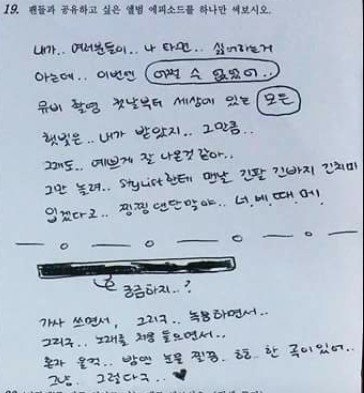 19. 팬들과 공유하고 싶은 앨범 에피소드를 하나만 써보시오.
내가.. 여러분들이.. 나 타면.. 싫어하는거
아는데.. 이번엔 어쩔 수 없었어..
뮤비 촬영 첫날부터 세상에 있는 모든
햇빛은.. 내가 받았지.. 그만큼..
그래도.. 예쁘게 잘 나온것 같아..
그만 놀려.. stylist한테 맨날 긴팔 긴바지 긴치마
입겠다고.. 찡찡댄단말야.. 너.네.때.메.
궁금하지..?
가사 쓰면서, 그리구.. 녹음하면서..
그리구.. 노래를 처음 들으면서..
혼자 울컥.. 방연 눈물 찔끔. 흐흐. 한 곡이 있어..
그냥.. 그렇다구.. ♥